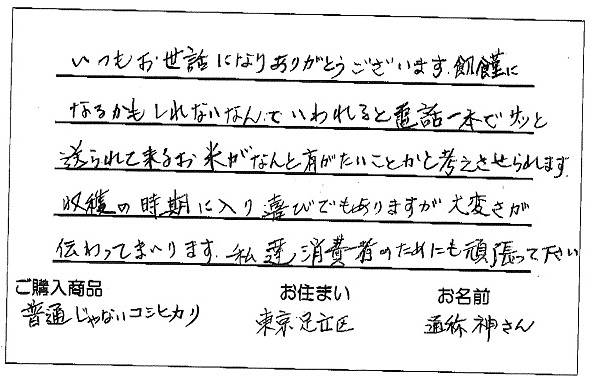 いつもお世話になりありがとうございます.飢饉に
なるかもしれないなんていわれると電話一本でサッと
送られて来るお米がなんと有がたいことかと考えさせられます.
収穫の時期に入り喜びでもありますが大変さが
伝わってまいります.私達消費者のためにも頑張って下さい
ご購入商品 お住まい お名前
普通じゃないコシヒカリ 東京足立区 通称神さん